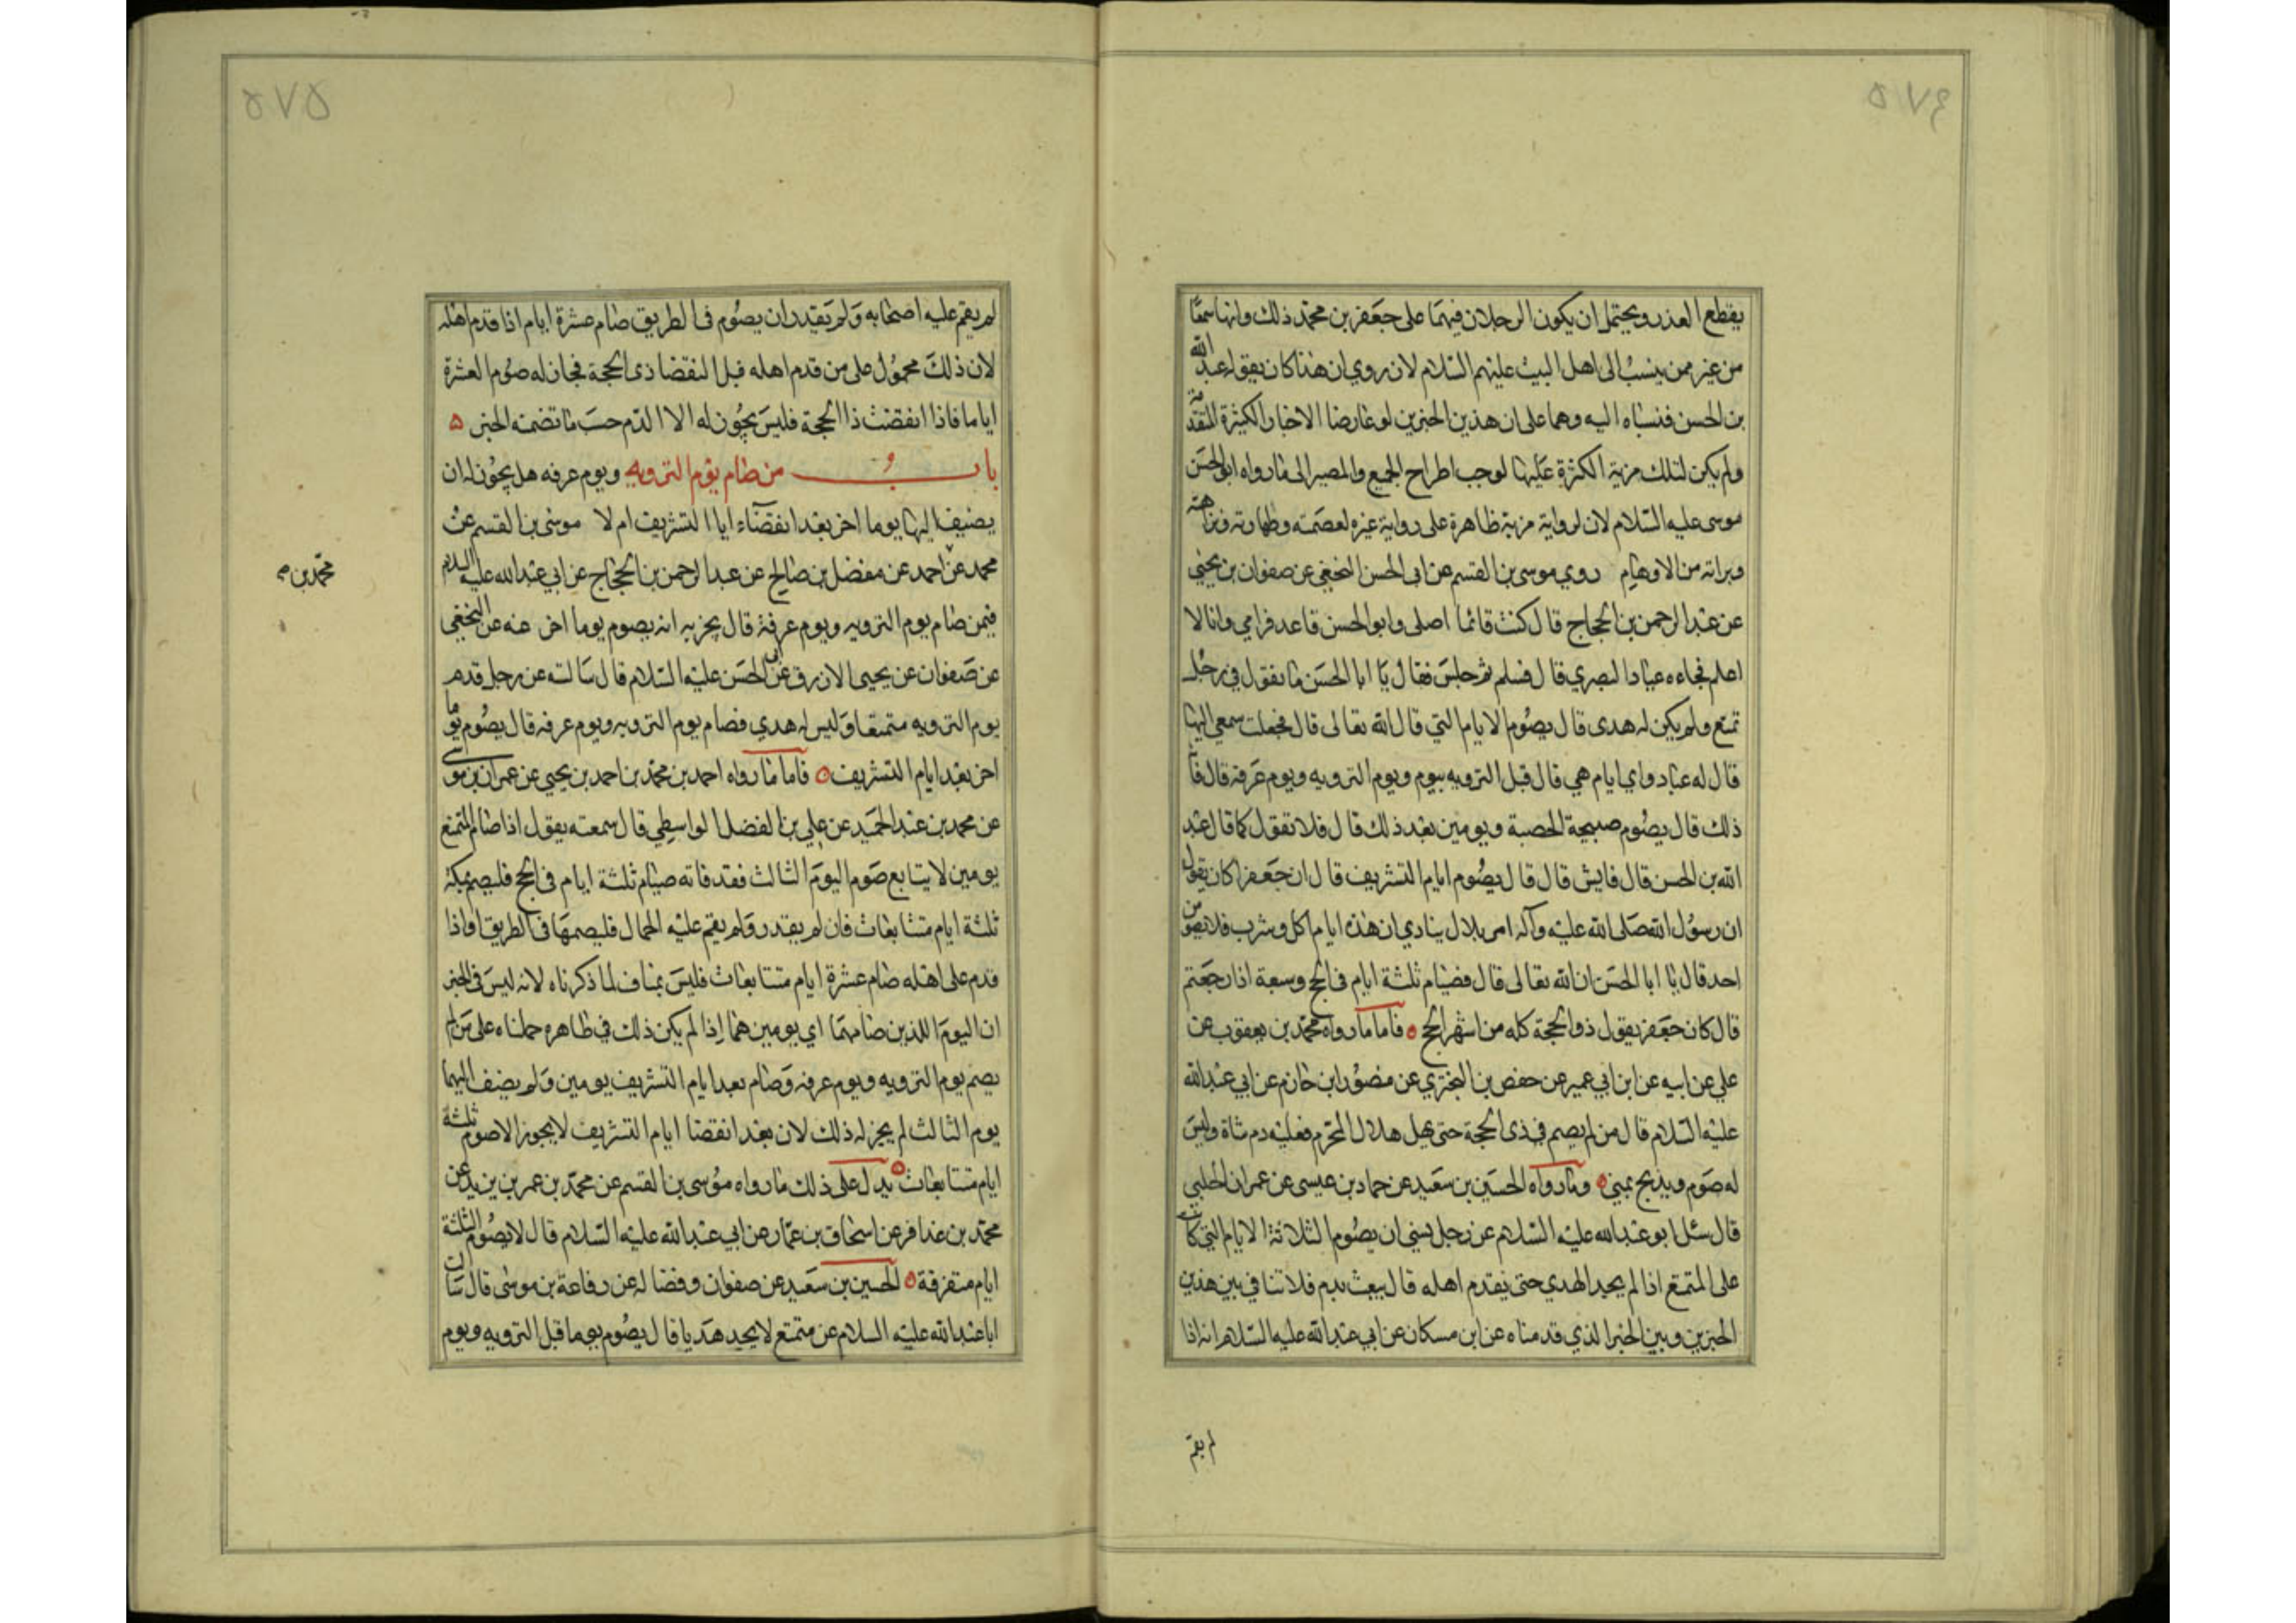 ٥٧٤
يقطع العذر ويحتمل ان يكون الرجلان فيهما على جعفر بن محمد ذلك وانها سمعا
من غير ممن ينسب الى اهل البيت عليهم السّلام لان روي ان هذا كان يقوله عبد الله
بن الحسن فنسباه اليه وهما على ان هذين الخبرين لو عارضا الاخبار الكثيرة المتقدمة
ولم يكن لتلك مزية الكثرة عليها لوجب اطراح الجميع والمصير الى ما رواه ابو الحسن
موسى عليه السّلام لان لروايته مزية ظاهرة على رواية غيره لعصمته وطهارته ونزاهته
وبرائه من الاوهام روي موسى بن القسم عن ابى الحسن النخعي عن صفوان بن يحيى
عن عبد الرحمن بن الحجاج قال كنت قائما اصلى وابو الحسن قاعد قدامي وانا لا
اعلم فجاءه عباد البصري قال فسلم ثم جلس فقال يا ابا الحسن ما تقول في رجل
تمتع ولم يكن له هدى قال يصوم الايام التي قال الله تعالى قال فجعلت سمعي اليها
قال له عباد واي ايام هي قال قبل الترويه بيوم ويوم الترويه ويوم عرفة قال فاته
ذلك قال يصوم صبيحة الحصبة ويومين بعد ذلك قال فلا تقول كما قال عبد
الله بن الحسن قال فايش قال قال يصوم ايام التشريف قال ان جعفرا كان يقول
ان رسول الله صلى الله عليه وآله امر بلال ينادي ان هذه ايام اكل وشرب فلا يصومن
احد قال يا ابا الحسن ان الله تعالى قال فصيام ثلثة ايام في الحج وسبعة اذا رجعتم
قال كان جعفر يقول ذو الحجة كله من اشهر الحج ه فاما ما رواه محمد بن يعقوب عن
علي عن ابيه عن ابن ابي عمير عن حفص بن البختري عن منصور ابن حازم عن ابي عبد الله
عليه السّلام قال من لم يصم في ذى الحجة حتى يهل هلال المحرم فعليه دم شاة وليس
له صوم ويذبح بمنى ه وما رواه الحسين بن سعيد عن حماد بن عيسى عن عمران الحلبي
قال سئل ابو عبد الله عليه السّلام عن رجل يسى ان يصوم الثلاثة الايام التي كانت
على المتمتع اذا لم يجد الهدي حتى يقدم اهله قال يبعث بدم فلا تنافي بين هذين
الخبرين وبين الخبر الذي قدمناه عن ابن مسكان عن ابي عبد الله عليه السّلام انه اذا
لم يقم
٥٧٥
لم يقم عليه اصحابه ولم يقدر ان يصوم فى الطريق صام عشرة ايام اذا قدم اهله
لان ذلك محمول على من قدم اهله قبل انقضا ذى الحجة فجاز له صوم العشرة
اياما فاذا انقضت ذا الحجة فليس يجوز له الا الدّم حسب ما تضمنه الخبر ه
باب من صام يوم الترويه ويوم عرفه هل يجوز له ان
يضيف اليها يوما اخر بعد انقضاء ايا التشريف ام لا موسى بن القسم عن
محمد عن احمد عن مفضل بن صالح عن عبد الرحمن بن الحجاج عن ابي عبد الله عليه السلام
محمد بن م
فيمن صام يوم الترويه ويوم عرفة قال يجزيه انه يصوم يوما اخر عنه عن النخعي
عن صفوان عن يحيى الازرق عن ابى الحسن عليه السّلام قال سالته عن رجل قدم
يوم الترويه متمتعا وليس له هدي فصام يوم الترويه ويوم عرفه قال يصوم يوما
اخر بعد ايام التشريف ه فاما ما رواه احمد بن محمد بن احمد بن يحيي عن عمران بن موسى
عن محمد بن عبد الحميد عن علي بن الفضل الواسطي قال سمعته يقول اذا صام المتمتع
يومين لا يتابع صوم اليوم الثالث فقد فاته صيام ثلثة ايام فى الحج فليصم بمكة
ثلثة ايام متتابعات فان لم يقدر ولم يقم عليه الجمال فليصمها فى الطريق او اذا
قدم على اهله صام عشرة ايام متتابعات فليس بمناف لما ذكرناه لانه ليس فى الخبر
ان اليوم اللذين صامهما اي يومين هما إذا لم يكن ذلك في ظاهره حملناه على من لم
يصم يوم الترويه ويوم عرفه وصام بعد ايام التشريف يومين ولم يضف اليهما
يوم الثالث لم يجز له ذلك لان بعد انقضا ايام التشريف لا يجوز الا صوم ثلثة
ايام متتابعات ه يدل على ذلك ما رواه موسى بن القسم عن محمد بن عمر بن يزيد عن
محمد بن عذافر عن اسحاق بن عمّار عن ابي عبد الله عليه السّلام قال لا يصوم الثلثة
ايام متفرقة ه الحسين بن سعيد عن صفوان وفضاله عن رفاعة بن موسى قال سالت
ابا عبد الله عليه السلام عن متمتع لا يجد هديا قال يصوم يوما قبل الترويه ويوم